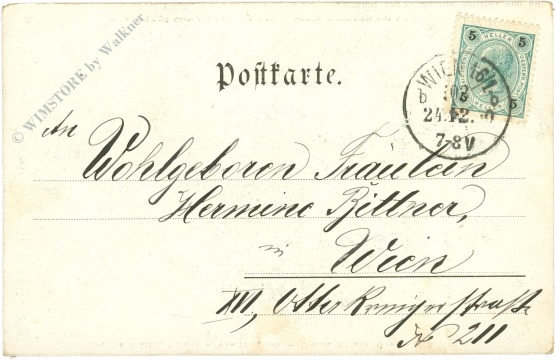 © WIMSTORE by Walkner
5 HELLER 5
Postkarte.
WIEN 16/1
24.12.
7-8V
An
Wohlgeboren Fräulein
Hermine Bittner,
in
Wien
XVI, Ottakringerstraße
№ 211